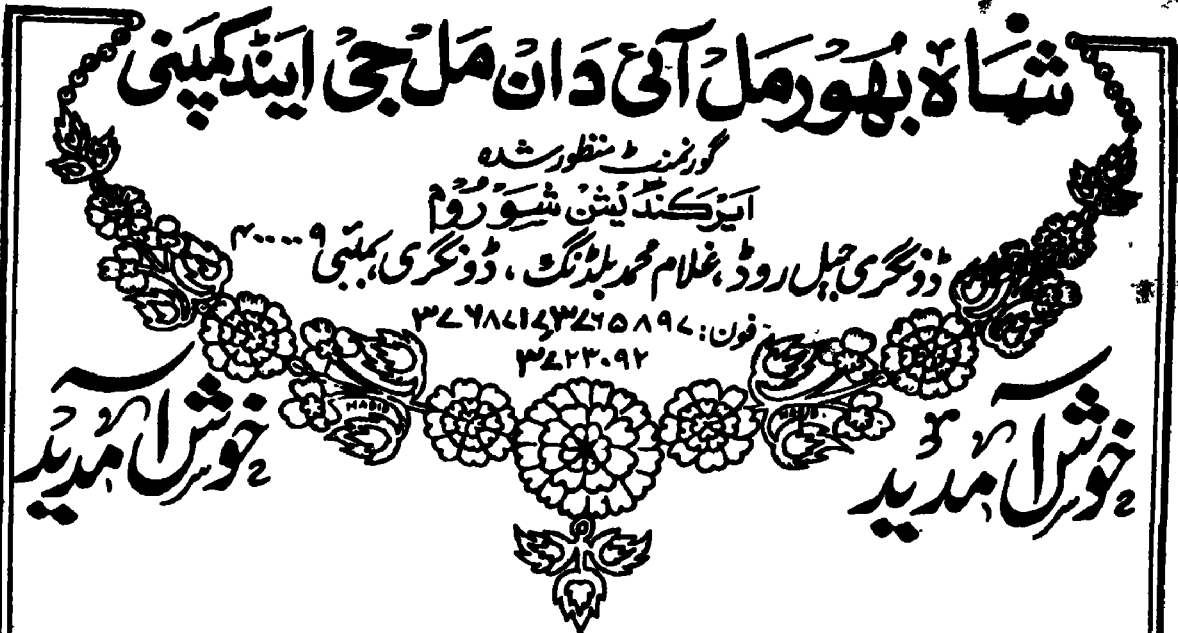 شاہ بھورمل آئی دان مل جی اینڈ کمپنی
گورنمنٹ منظور شدہ
ایرکنڈیشن شو روم
ڈونگری جیل روڈ، غلام محمد بلڈنگ، ڈونگری، بمبئی ۴۰۰۰۰۹
فون: ۳۷۶۵۸۹۷، ۳۷۶۸۷۱۷
۳۷۲۳۰۹۲
خوش آمدید
خوش آمدید
HABIB